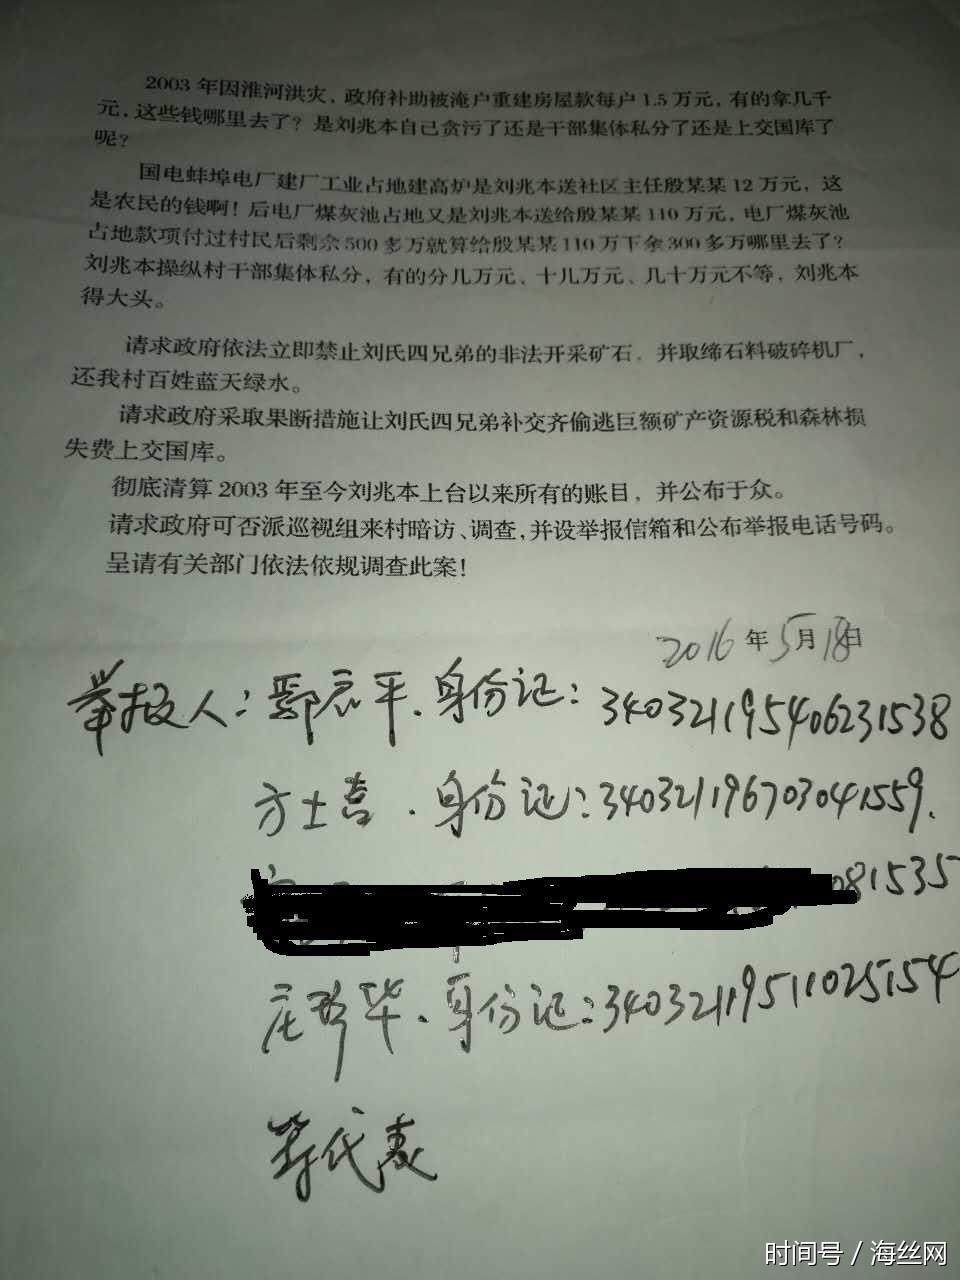 2003年因淮河洪灾，政府补助被淹户重建房屋款每户1.5万元，有的拿几千
元，这些钱哪里去了？是刘兆本自己贪污了还是干部集体私分了还是上交国库了
呢？
国电蚌埠电厂建厂工业占地建高炉是刘兆本送社区主任殷某某12万元，这
是农民的钱啊！后电厂煤灰池占地又是刘兆本送给殷某某110万元，电厂煤灰池
占地款项付过村民后剩余500多万就算给殷某某110万下余300多万哪里去了？
刘兆本操纵村干部集体私分，有的分几万元、十几万元、几十万元不等，刘兆本
得大头。
请求政府依法立即禁止刘氏四兄弟的非法开采矿石，并取缔石料破碎机厂，
还我村百姓蓝天绿水。
请求政府采取果断措施让刘氏四兄弟补交齐偷逃巨额矿产资源税和森林损
失费上交国库。
彻底清算2003年至今刘兆本上台以来所有的账目，并公布于众。
请求政府可否派巡视组来村暗访、调查，并设举报信箱和公布举报电话号码。
呈请有关部门依法依规调查此案！
2016年5月18日
举报人：鄢家平．身份证：340321195406231538
方士喜．身份证：340321196703041559．
081535
庄 毕．身份证：34032119511025154
等代表
时间号／海丝网